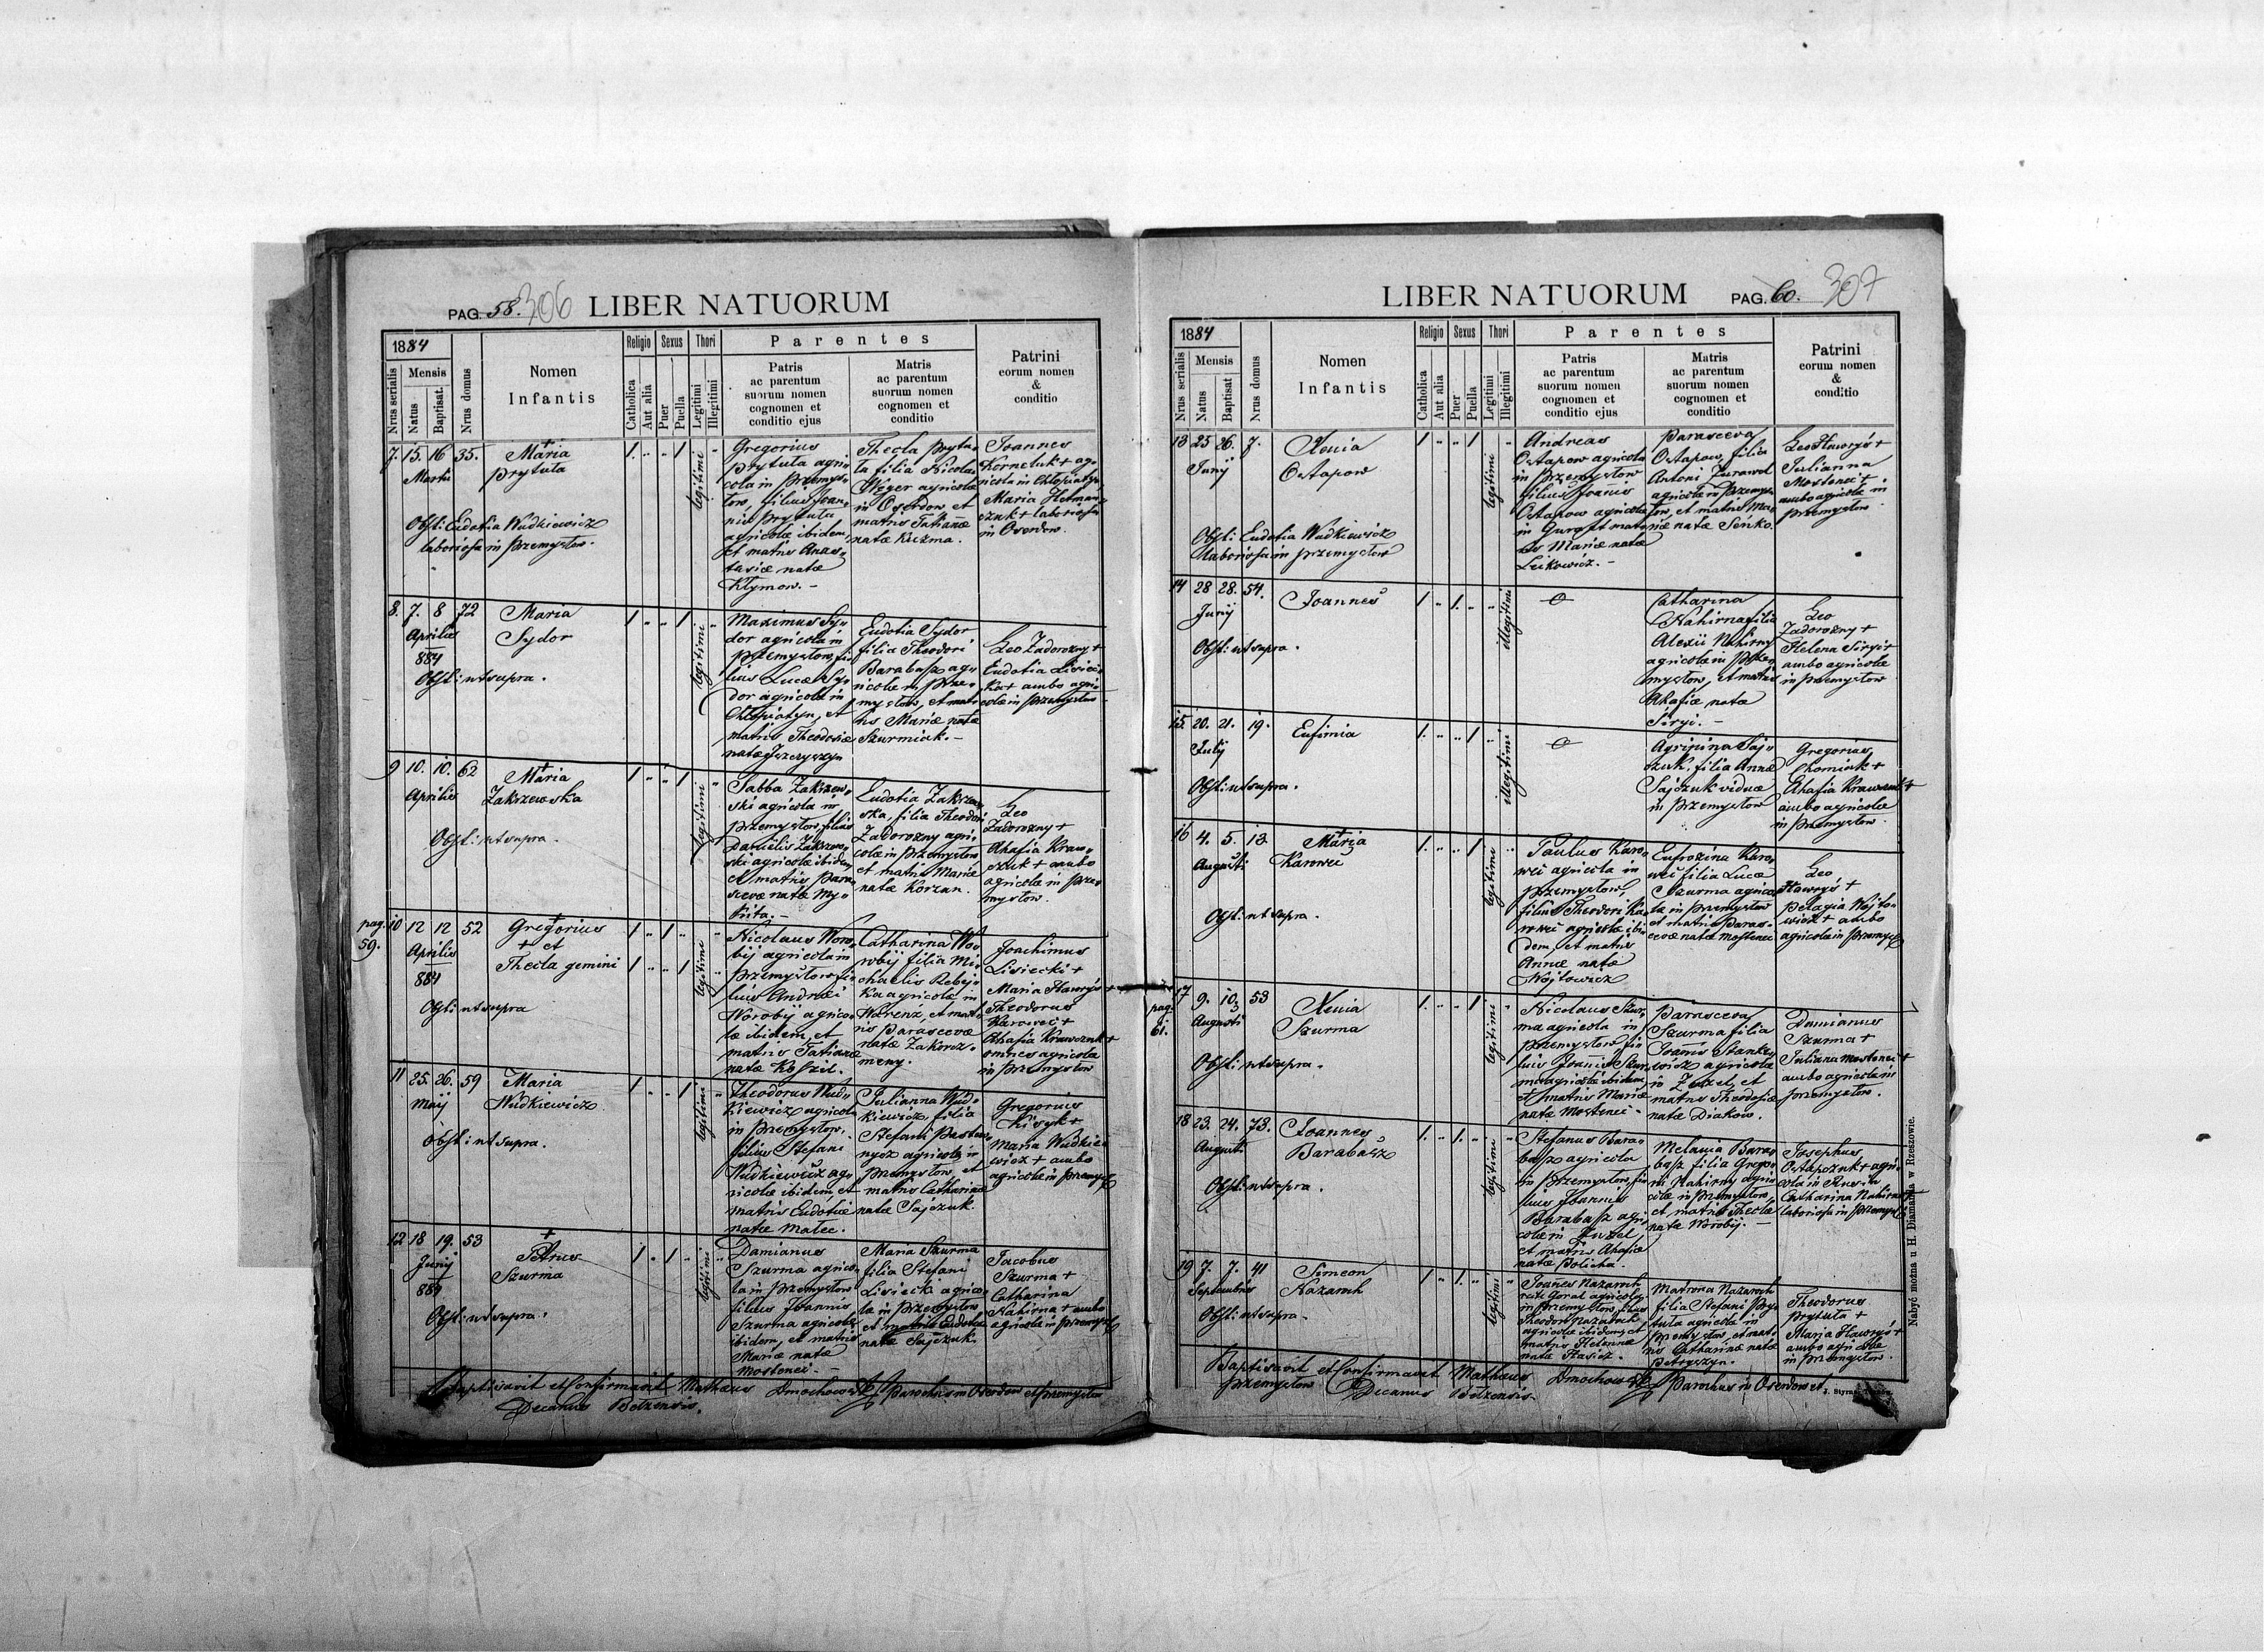 PAG. 58. 306 LIBER NATUORUM
1884
Nrus serialis
Mensis
Natus
Baptisat.
Nrus domus
Nomen
Infantis
Religio
Catholica
Aut alia
Sexus
Puer
Puella
Thori
Legitimi
Illegitimi
Parentes
Patris
ac parentum
suorum nomen
cognomen et
conditio ejus
Matris
ac parentum
suorum nomen
cognomen et
conditio
Patrini
eorum nomen
&
conditio
7. 15. 16 35.
Martii
Maria
Prytuta
Obst: Eudotia Wudkiewicz
laboriosa in Przemysłow.
legitimi
Gregorius
Prytuta agri-
cola in Przemys-
łow, filius Joan-
nis Prytuta
agricolæ ibidem,
et matris Anas-
tasiæ natæ
Kłymow. -
Thecla Pryta-
ta filia Nicolai
Weger agricolæ
in Oserdow et
matris Tatianæ
natæ Kuzma.
Joannes
Korneluk + ag-
ricola in Chłopiatyn
Maria Hetman-
czuk + laboriosa
in Oserdow.
8. 7. 8 72
Aprilis
884
Maria
Sydor
Obst: ut supra.
legitimi
Maximus Sy-
dor agricola in
Przemysłow, fi-
lius Lucæ Sy-
dor agricolæ in
Chłopiatyn, et
matris Theodosiæ
natæ Jszczyszyn
Eudotia Sydor
filia Theodori
Barabasz ag-
ricolæ in Prze-
mysłow, et mat-
ris Mariæ natæ
Szurmiak. -
Leo Zadorozny +
Eudotia Lisiec-
ka + ambo agri-
colæ in Przemysłow
9 10. 10. 62
Aprilis
Maria
Zakrzewska
Obst: ut supra.
legitimi
Sabba Zakrzew-
ski agricola in
Przemysłow, filius
Danielis Zakrzew-
ski agricolæ ibidem,
et matris Para-
scevæ natæ My-
kita. -
Eudotia Zakrzew-
ska, filia Theodori
Zadorozny agri-
colæ in Przemysłow
et matris Mariæ
natæ Korzan.
Leo
Zadorozny +
Ahafia Kraw-
czuk + ambo
agricolæ in Prze-
mysłow.
pag.
59.
10 12 12 52
Aprilis
884
Gregorius
+ et
Thecla gemini
Obst: ut supra
legitimi
Nicolaus Woro-
bij agricola in
Przemysłow, fi-
lius Andreæ
Worobij agrico-
læ ibidem, et
matris Tatianæ
natæ Koszil.
Catharina Wo-
robij filia Mi-
chaelis Rebij-
ka agricolæ in
Warenz, et mat-
ris Parascevæ
natæ Zakorz-
meny.
Joachimus
Lisiecki +
Maria Hawryś +
Theodorus
Karoweć +
Ahafia Krawczuk +
omnes agricolæ
in Przemysłow
11 25. 26. 59
Maij
Maria
Wudkiewicz
Obst: ut supra.
legitimi
Theodorus Wud-
kiewicz agricola
in Przemysłow,
filius Stefani
Wudkiewicz ag-
ricolæ ibidem, et
matris Eudotiæ
natæ Malec.
Julianna Wud-
kiewicz, filia
Stefani
agricolæ in
Przemysłow, et
matris Catharinæ
natæ Sajczuk.
Gregorius
Kisyk +
Maria Wudkie-
wicz + ambo
agricolæ in Przemysł
12 18 19. 53
Junij
884
+
Petrus
Szurma
Obst: ut supra.
legitimi
Damianus
Szurma agrico-
la in Przemysłow
filius Joannis
Szurma agricolæ
ibidem, et matris
Mariæ natæ
Mosteneć. -
Maria Szurma
filia Stefani
Lisiecki agrico-
la in Przemysłow
et matris Eudotiæ
natæ Sajczuk.
Jacobus
Szurma +
Catharina
Nahirna + ambo
agricolæ in Przemysł
Baptisavit et Confirmavit Mathæus Dmochowski Parochus in Oserdow et Przemysłow
Decanus Bełzensis.
LIBER NATUORUM PAG. 60. 307
1884
Nrus serialis
Mensis
Natus
Baptisat.
Nrus domus
Nomen
Infantis
Religio
Catholica
Aut alia
Sexus
Puer
Puella
Thori
Legitimi
Illegitimi
Parentes
Patris
ac parentum
suorum nomen
cognomen et
conditio ejus
Matris
ac parentum
suorum nomen
cognomen et
conditio
Patrini
eorum nomen
&
conditio
13 25 26. 7.
Junij
Xenia
Ostapow
Obst: Eudotia Wudkiewicz
laboriosa in Przemysłow
legitimi
Andreas
Ostapow agricola
in Przemysłow
filius Joannis
Ostapow agricolæ
in et mat-
ris Mariæ natæ
Lukowicz. -
Parasceva
Ostapow, filia
Antoni Zurawel
agricolæ in Przemys-
łow, et matris Ma-
riæ natæ Seńko.
Leo Hawryś +
Julianna
Mosteneć +
ambo agricolæ in
Przemysłow.
14 28 28. 54.
Junij
Joannes
Obst: ut supra.
illegitimi
Catharina
Nahirna filia
Alexii Nahirny
agricolæ in Prze-
mysłow, et matris
Ahafiæ natæ
Siryi. -
Leo
Zadorozny +
Helena Siryi +
ambo agricolæ
in Przemysłow
15. 20. 21. 19.
Julij
Eufimia
Obst: ut supra.
illegitimi
Agripina Saj-
czuk, filia Annæ
Sajczuk viduæ
in Przemysłow
Gregorius
Chomiak +
Ahafia Krawczuk +
ambo agricolæ
in Przemysłow.
16 4. 5. 13.
Augusti
Maria
Karoweć
Obst: ut supra.
legitimi
Paulus Karo-
weć agricola in
Przemysłow,
filius Theodori Ka-
roweć agricolæ ibi-
dem, et matris
Annæ natæ
Wojtowicz
Eufrozina Karo-
weć filia Lucæ
Szurma agrico-
læ in Przemysłow
et matris Paras-
cevæ natæ Mosteneć
Leo
Hawryś +
Pelagia Wojto-
wicz + ambo
agricolæ in Przemysł
pag.
61.
17 9. 10. 53
Augusti
Xenia
Szurma
Obst: ut supra.
legitimi
Nicolaus Szur-
ma agricola in
Przemysłow, fi-
lius Joannis Szur-
ma agricolæ ibidem,
et matris Mariæ
natæ Mosteneć -
Parasceva
Szurma filia
Joannis Stanke-
wicz agricolæ
in Zużel, et
matris Theodosiæ
natæ Diakow.
Damianus
Szurma +
Julianna Mosteneć +
ambo agricolæ in
Przemysłow.
18 23. 24. 73.
Augusti
Joannes
Barabasz
Obst: ut supra.
legitimi
Stefanus Bara-
basz agricola
in Przemysłow, fi-
lius Joannis
Barabasz agri-
colæ in Zużel,
et matris Ahafiæ
natæ Bolicha.
Melania Bara-
basz filia Grego-
rii Nahirny agri-
colæ in Przemysłow,
et matris Theclæ
natæ Worobij. -
Josephus
Ostapczuk + agri-
cola in
Catharina Nahirna +
laboriosa in Przemysł
19 7. 7. 41
Septembris
Simeon
Nazaroh
Obst: ut supra.
legitimi
Joannes Nazaroh
Goral agricola
in Przemysłow, filius
Theodori Nazaroh
agricolæ ibidem, et
matris Helennæ
natæ Stasicz.
Matrona Nazaroh
filia Stefani Pry-
tuta agricolæ in
Przemysłow, et mat-
ris Catharinæ natæ
Petryszyn.
Theodorus
Prytuta +
Maria Hawryś +
ambo agricolæ
in Przemysłow.
Baptisavit et Confirmavit Mathæus Dmochowski Parochus in Oserdow et
Przemysłow Decanus Bełzensis.
Nabyć można u H. Diamanta w Rzeszowie.